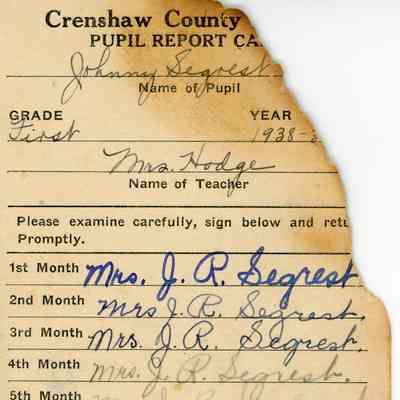 Crenshaw County
PUPIL REPORT CA
Johnny Segrest
Name of Pupil
GRADE YEAR
First 1938-3
Mrs. Hodge
Name of Teacher
Please examine carefully, sign below and retu
Promptly.
1st Month Mrs. J. R. Segrest
2nd Month Mrs J. R. Segrest.
3rd Month Mrs. J. R. Segrest.
4th Month Mrs. J. R. Segrest.
5th Month